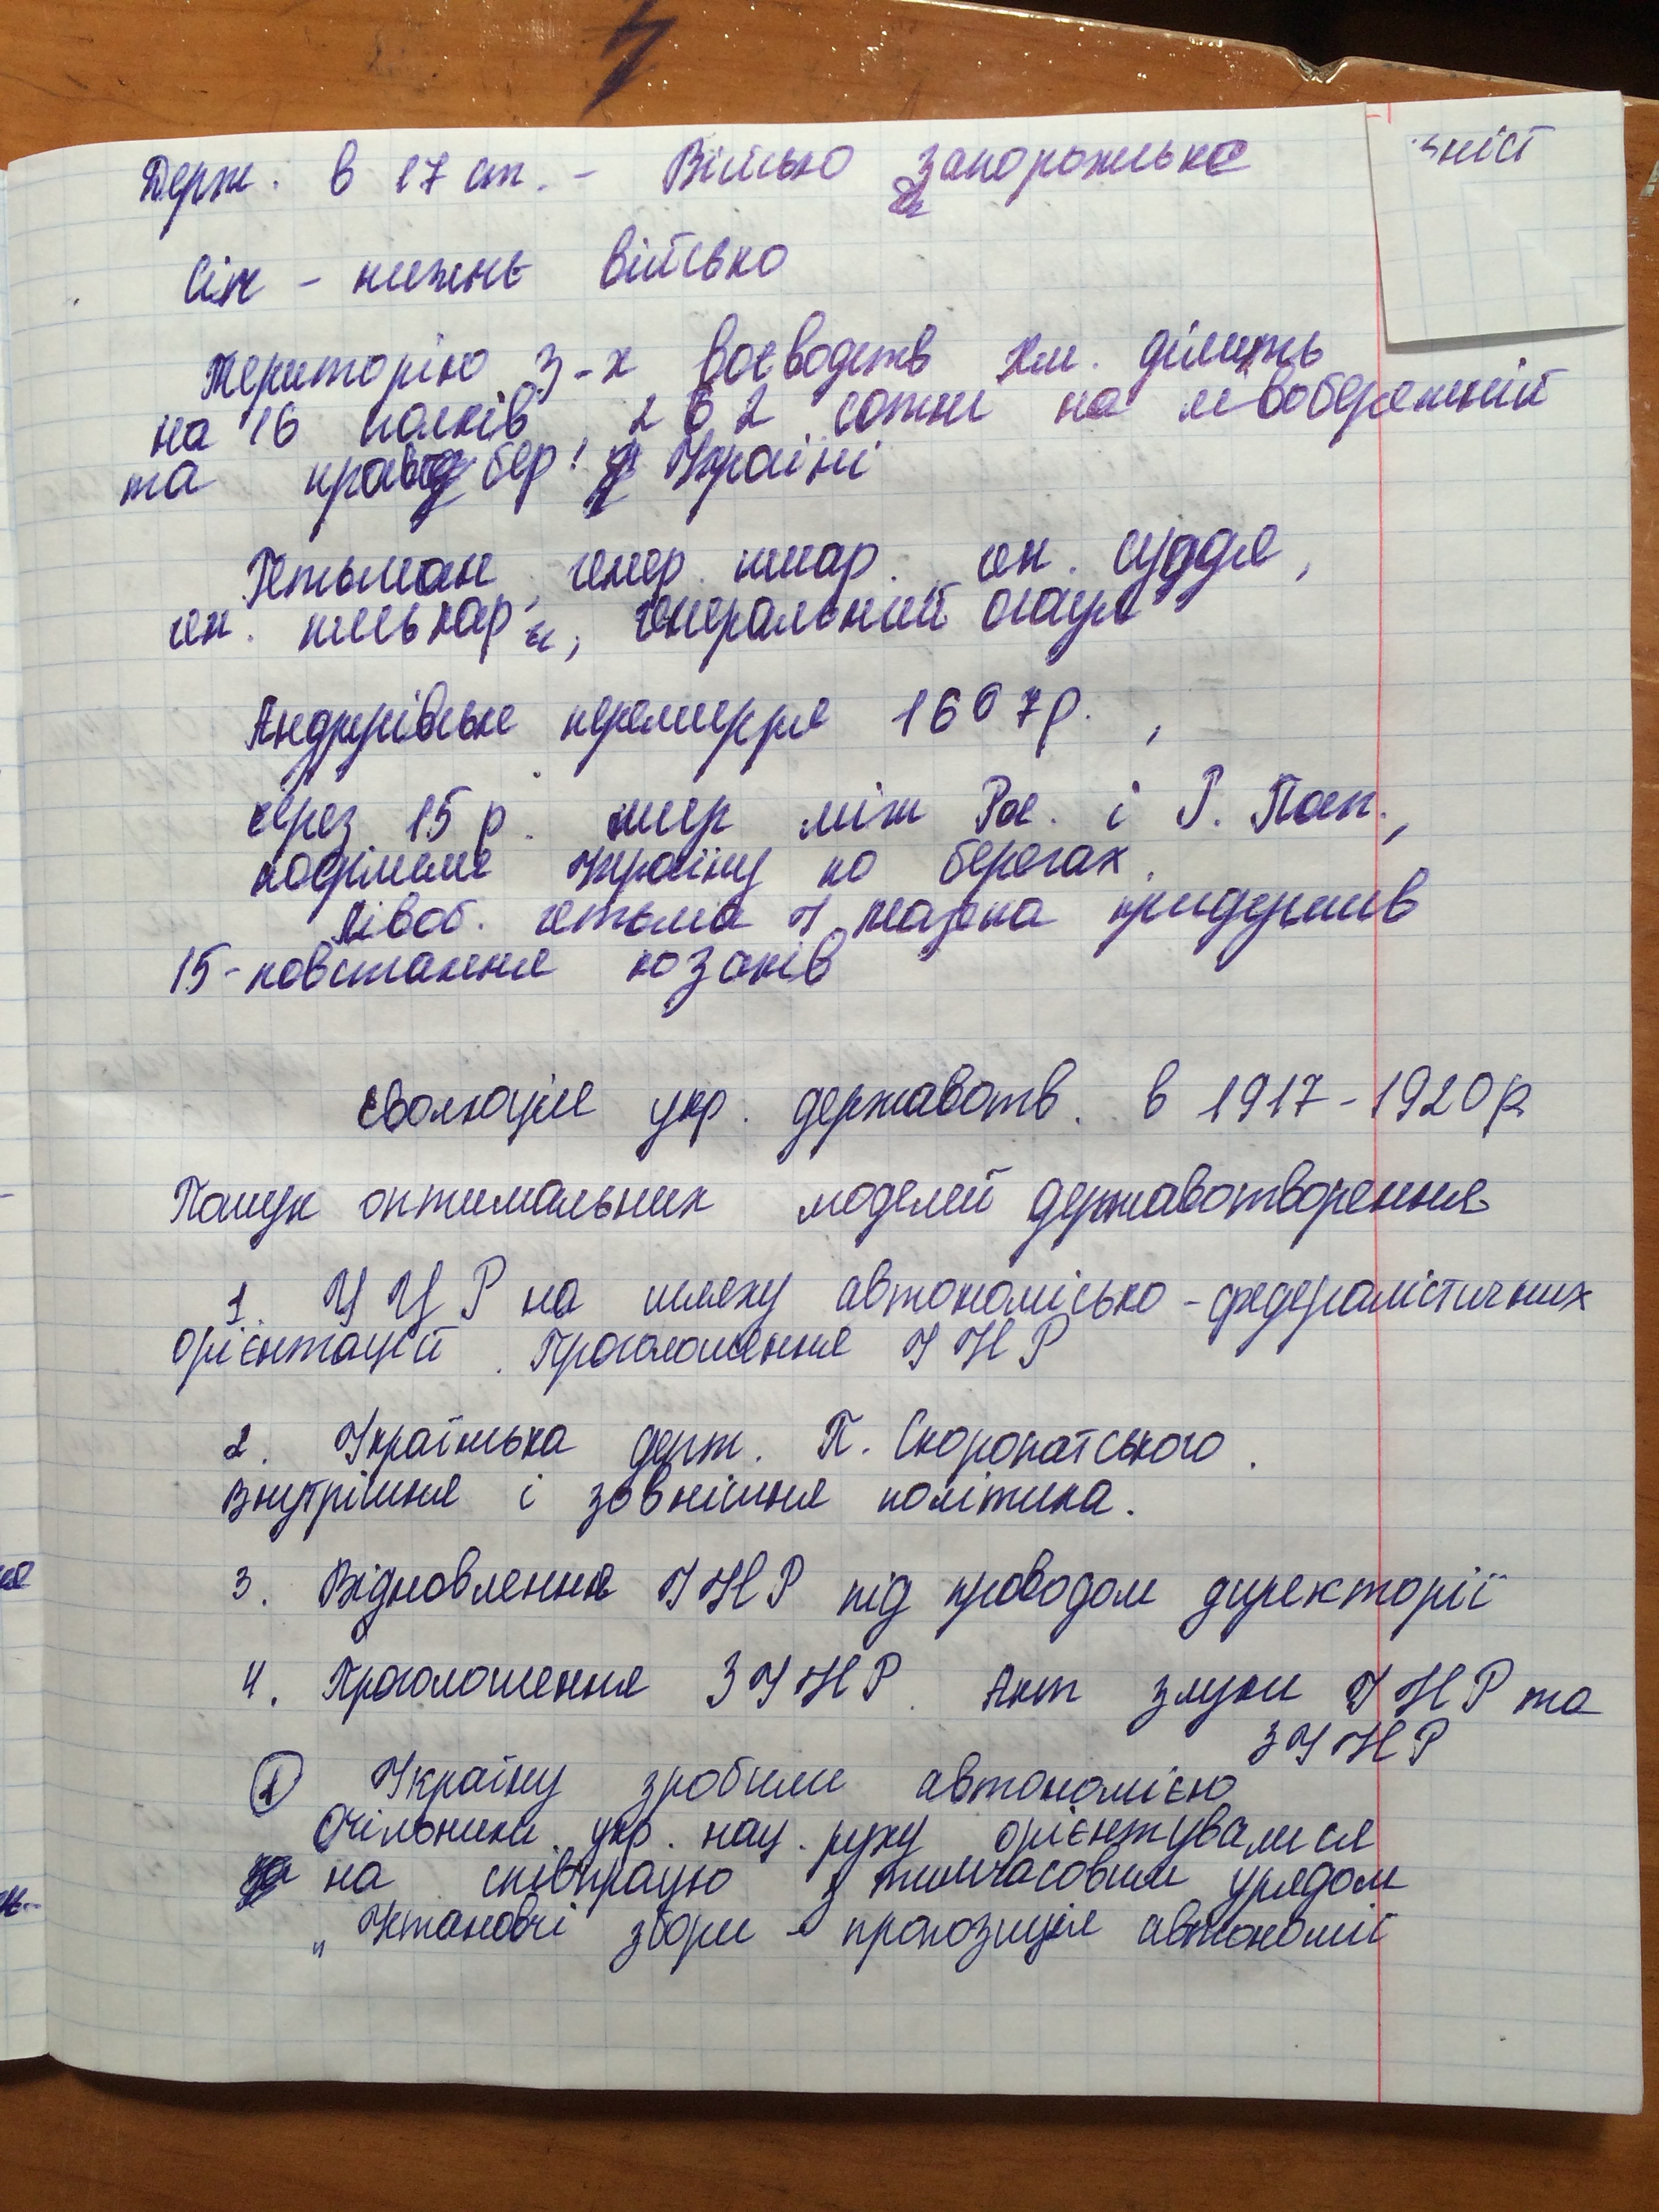 Держ. в 17 ст. - Військо Запорожське
зміст
Січ - нижнє військо
Територію 3-х воєводств Хм. ділить
на 16 полків 262 сотни на лівобережній
та правобер. Україні
Гетьман, генер. писар. ген. суддя,
ген. , генеральний осаул
Андрусівське перемирря 1667р.,
через 15 р. мир між Рос. і Р. Посп.,
поділили Україну по берегах.
Лівоб. гетьма І. Мазепа придушив
15-повстання козаків
Еволюція укр. державотв. в 1917-1920р
Пошук оптимальних моделей державотворення
1. УЦР на шляху автономісько-федералістичних
орієнтацій. Проголошення УНР
2. Українська держ. П. Скоропатського.
Внутрішня і зовнішня політика.
3. Відновлення УНР під проводом директорії
4. Проголошення ЗУНР. Акт злуки УНР та
ЗУНР
1 Україну зробили автономією
Очільники укр. нац. руху орієнтувалися
на співпрацю з тимчасовим урядом
„Установчі збори - пропозиція автономії